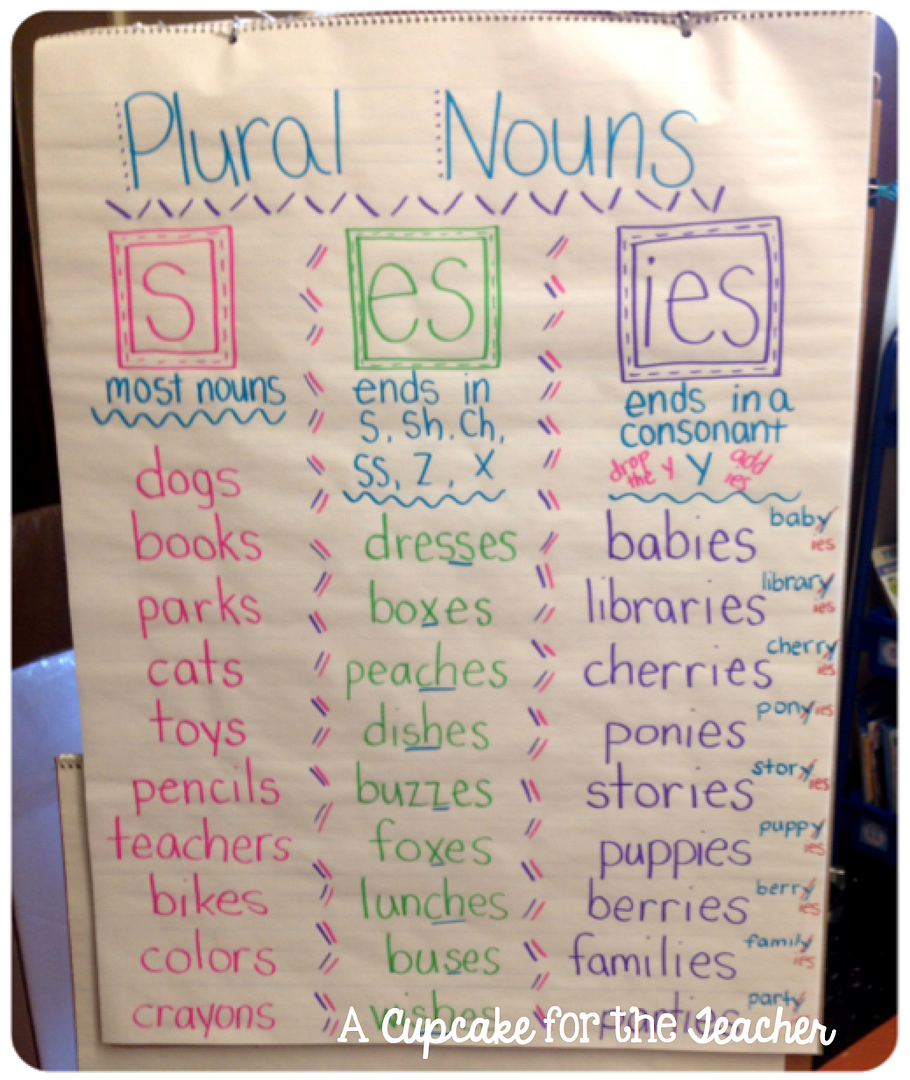 Plural Nouns
s
most nouns
dogs
books
parks
cats
toys
pencils
teachers
bikes
colors
crayons
es
ends in
S, Sh, Ch,
SS, Z, X
dresses
boxes
peaches
dishes
buzzes
foxes
lunches
buses
wishes
ies
ends in a
consonant
drop the y Y add ies
babies baby ies
libraries library ies
cherries cherry ies
ponies pony ies
stories story ies
puppies puppy ies
berries berry ies
families family ies
parties party
A Cupcake for the Teacher